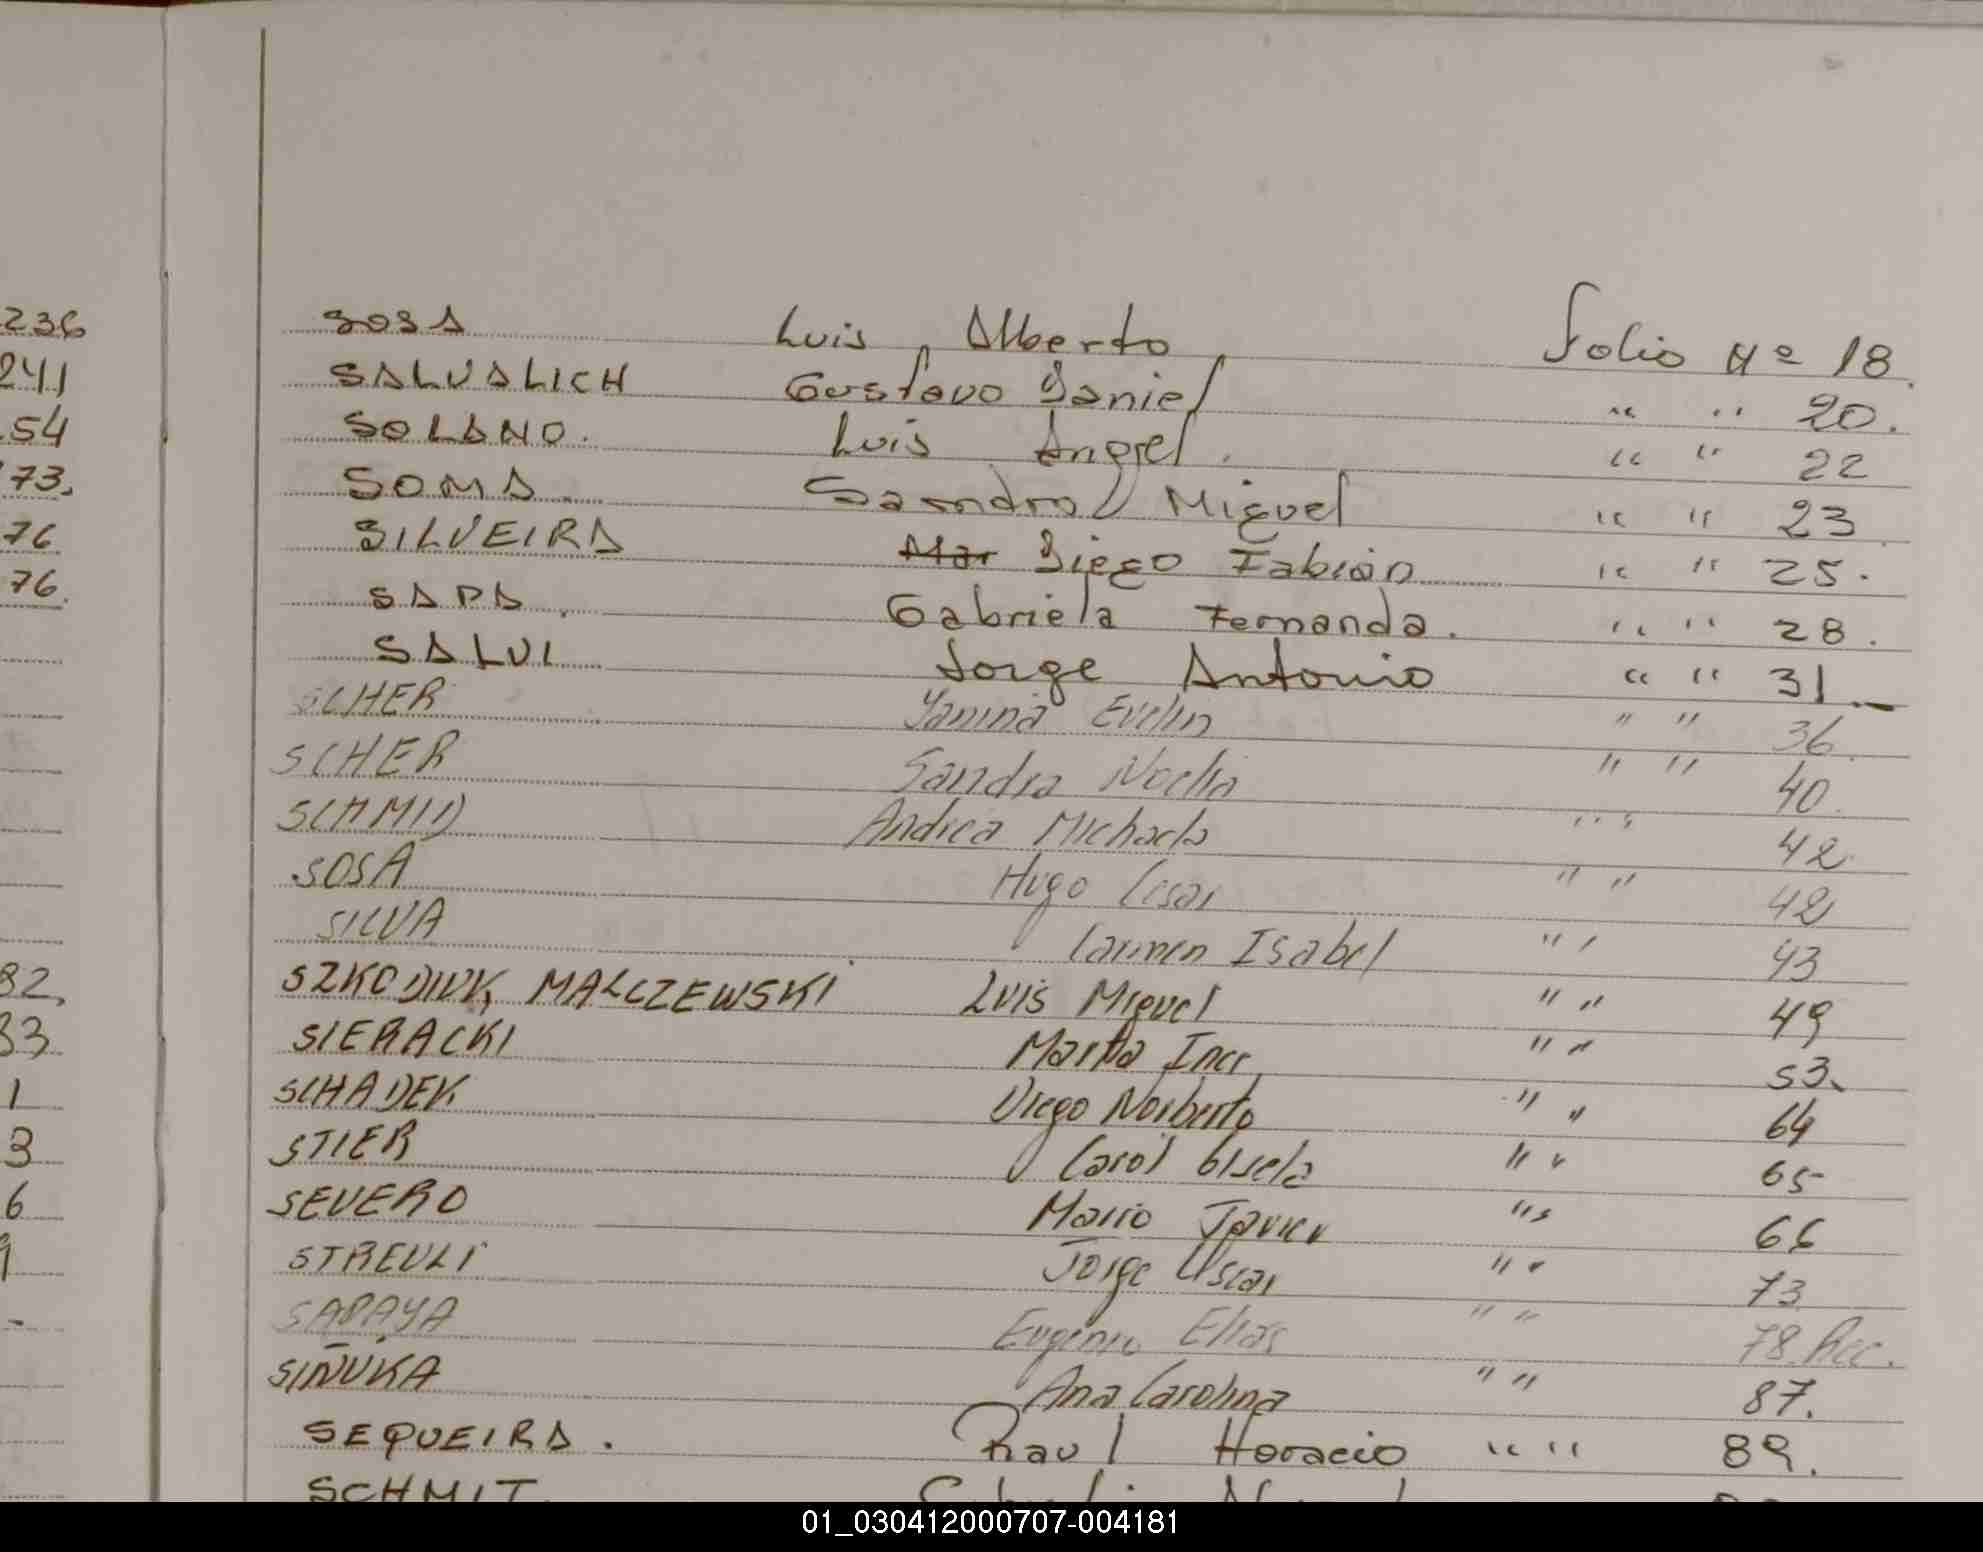 236
241
54
73.
76
76.
32.
33
1
3
6
9
SOSA Luis Alberto Folio Nº 18.
SALVALICH Gustavo Daniel " " 20.
SOLANO. Luis Angel. " " 22
SOMA Sandro Miguel " " 23
SILVEIRA Mar Diego Fabián " " 25.
SAPA. Gabriela Fernanda. " " 28.
SALVI Jorge Antonio " " 31
SCHER Yanina Evelin " " 36
SCHER Sandra Noelia " " 40
SCHMID Andrea Michaela " " 42
SOSA Hugo Cesar " " 42
SILVA Carmen Isabel " " 43
SZKODIUK MALCZEWSKI Luis Miguel " " 49
SIERACKI Marta Ines " " 53.
SCHADEK Diego Norberto " " 64
STIER Carol Gisela " " 65
SEVERO Mario Javier " " 66
STREULI Jorge Oscar " " 73
SAPAYA Eugenio Elias " " 78 Rec.
SIÑUKA Ana Carolina " " 87.
SEQUEIRA. Raul Horacio " " 89.
SCHMIT
01_030412000707-004181